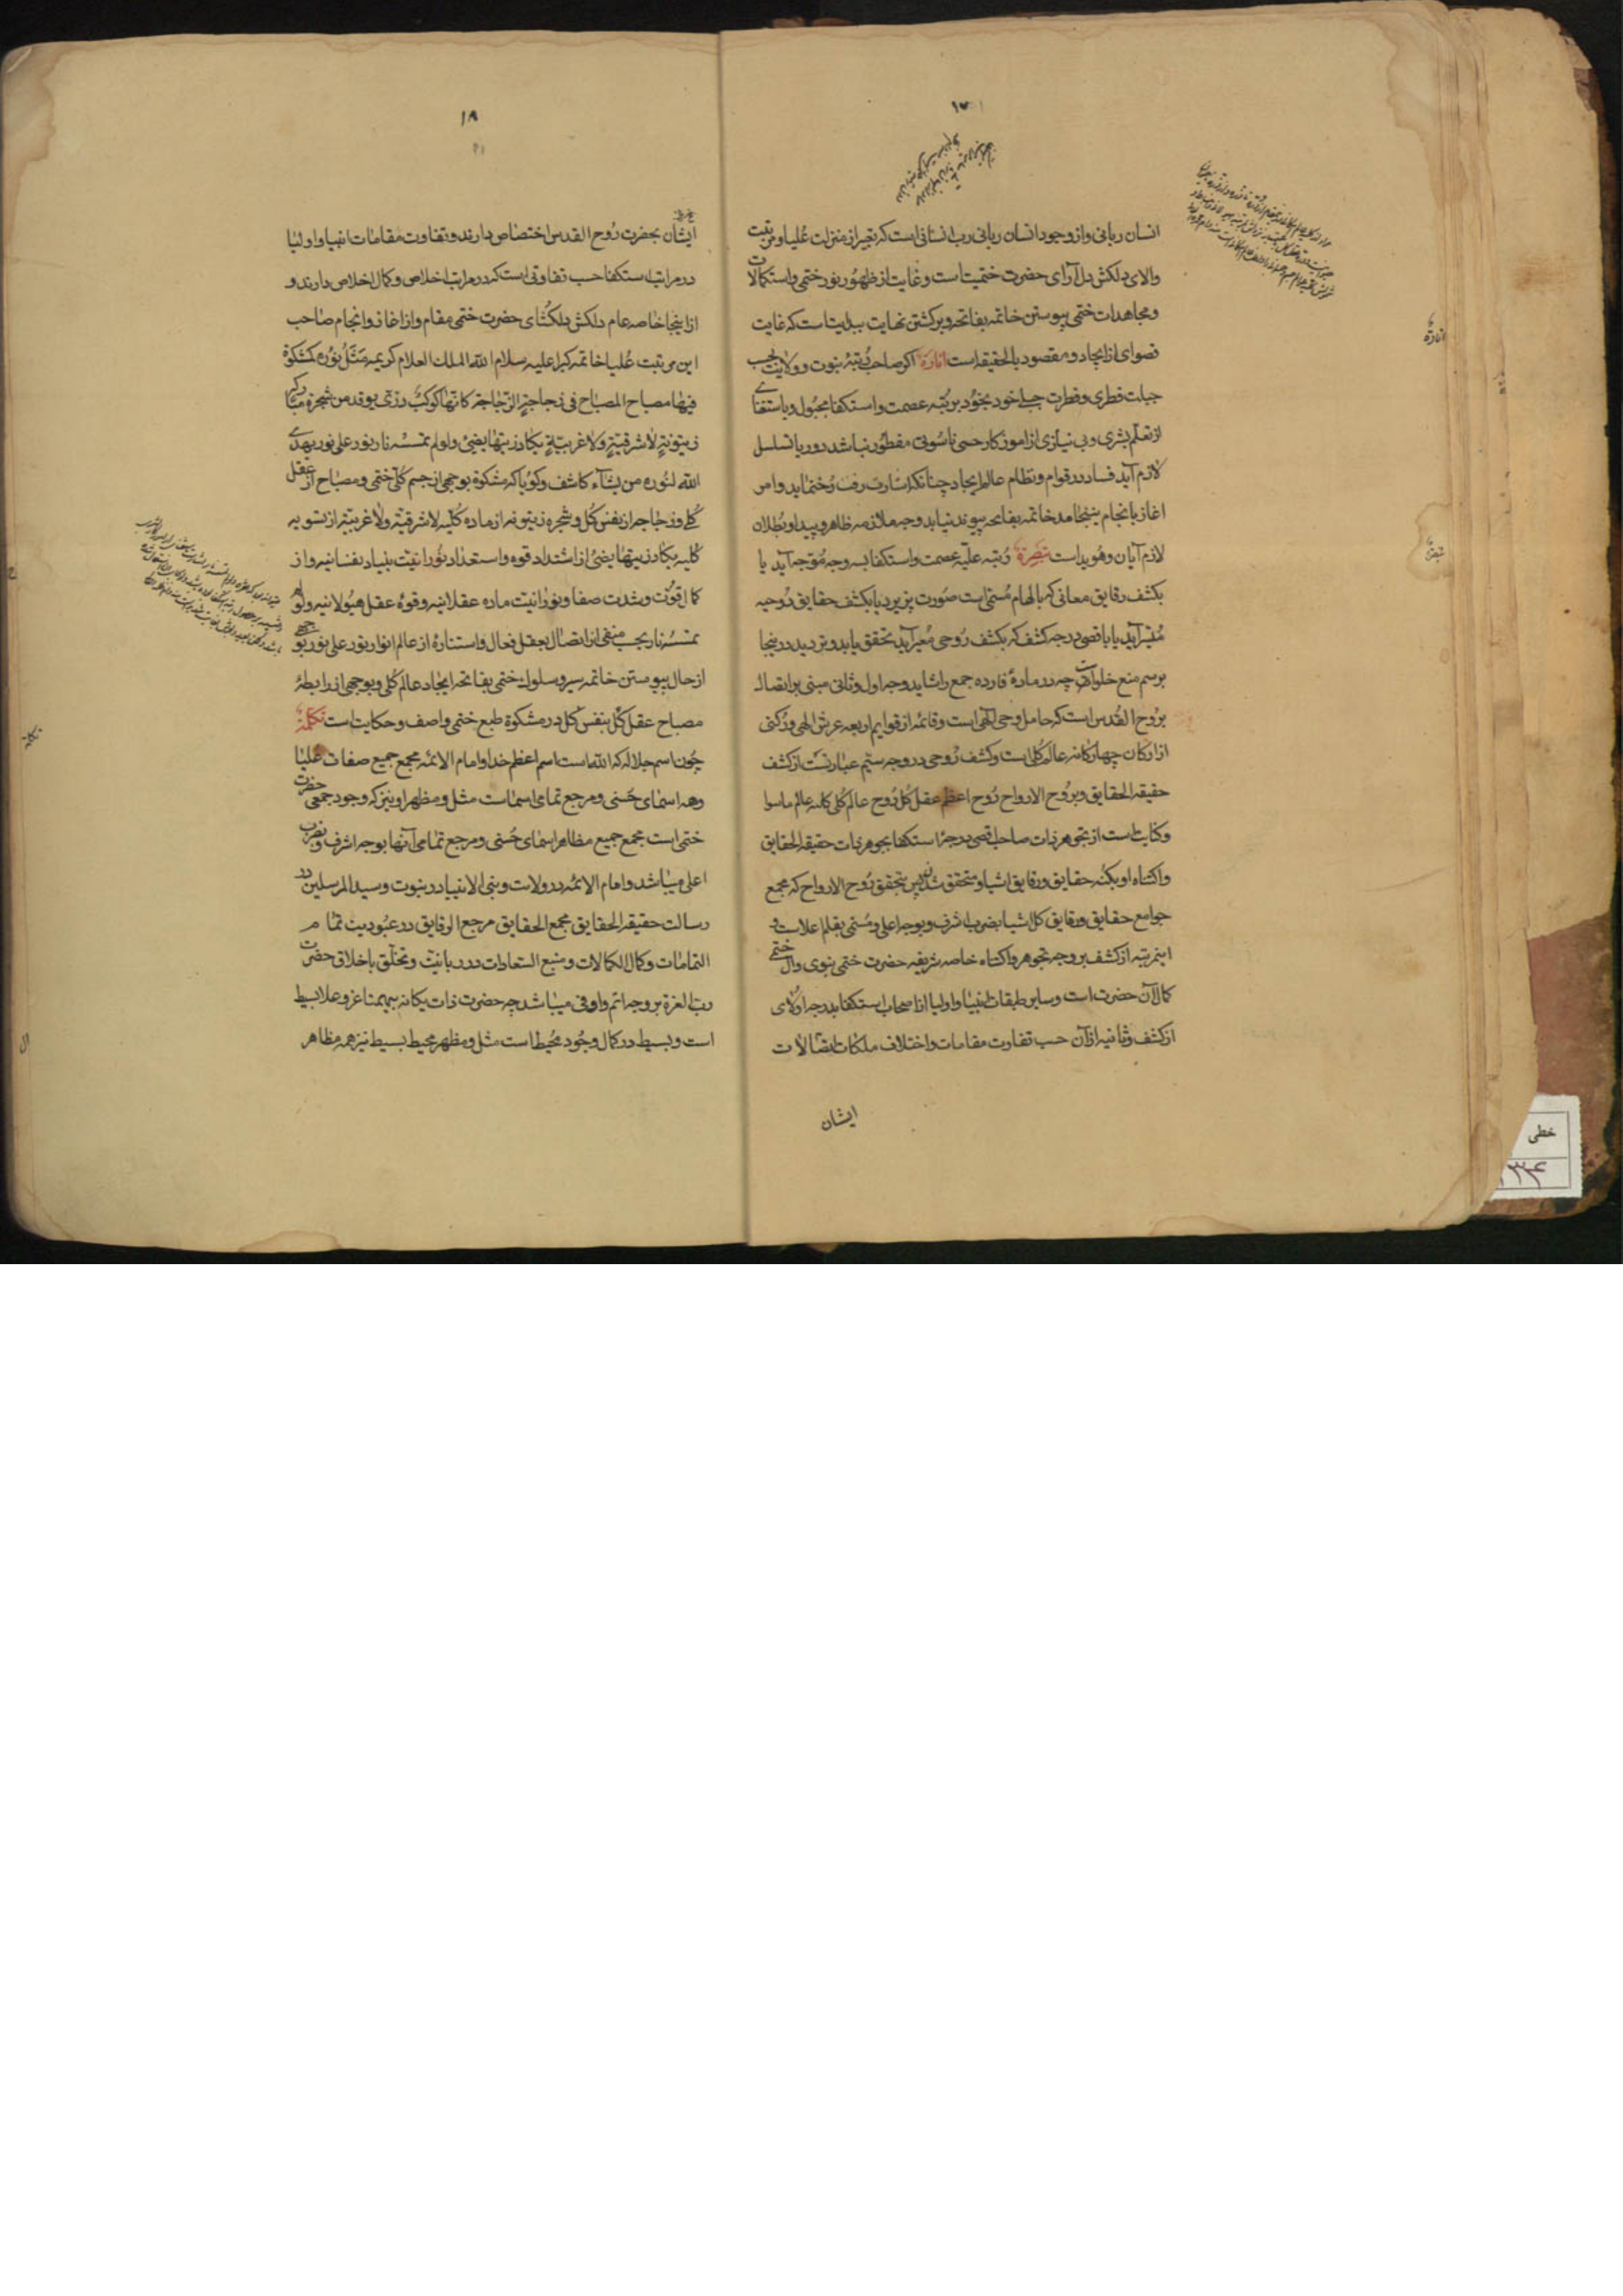 ۱۷
انسان ربانی و از وجود انسان ربانی رب انسانی است که تعبیر از منزلت علیا و مرتبت
والای دلکش دل آرای حضرت ختمیت است و غایت از ظهور نور ختمی و استکمالات
و مجاهدات ختمی پیوستن خاتمه بفاتحه و برگشتن نهایت ببدایت است که غایت
قصوای از ایجاد و مقصود بالحقیقه است انارة اکر صاحب رتبهٔ نبوت و ولایت بحسب
جبلت فطری و فطرت جبلی خود بخود بر رتبه عصمت و استکفا مجبول و باستغنای
از تعلم بشری و بی نیازی از اموزکار حسی ناسوتی مفطور نباشد دور یا تسلسل
لازم آید فساد در قوام و نظام عالم ایجاد چنانکه اشارت رفت رخ نماید و امر
اغاز بانجام نینجامد خاتمه بفاتحه پیوند نیابد وجه ملازمه ظاهر و پیدا و بطلان
لازم آیان و هویداست تبصرة رتبه علیّه عصمت و استکفا بسه وجه موجه آید یا
بکشف رقایق معانی که بالهام مسمی است صورت پزیرد یا بکشف حقایق روحیه
میسر آید یا باقصی درجه کشف که بکشف روحی معبر آید تحقق یابد و تردید در اینجا
برسم منع خلو است چه در مادهٔ فارده جمع را شاید وجه اول و ثانی مبنی بر اتصال
بروح القدس است که حامل وحی الهی است و قائمه از قوایم اربعه عرش الهی و رکنی
از ارکان چهارکانه عالم کلی است و کشف روحی در وجه سیّم عبارتست از کشف
حقیقه الحقایق و بروح الارواح روح اعظم عقل کل روح عالم کلی کانه عالم ماسوا
و کنایت است از تجوهر ذات صاحب اقصی درجهٔ استکفا بجوهر ذات حقیقه الحقایق
و اکتناه او بکنه حقایق و رقایق اشیا و متحقق شدن پس بتحقق روح الارواح که مجمع
جوامع حقایق و رقایق کل اشیا بضرب اشرف و بوجه اعلی و مسمی بقلم اعلاست و
اینمرتبه از کشف بر وجه تجوهر و اکتناه خاصه شریفه حضرت ختمی نبوی و آل ختمی
کمال آن حضرت است و سایر طبقات انبیا و اولیا از اصحاب استکفا بدرجه اولای
از کشف و ثانیه از آن حسب تفاوت مقامات و اختلاف ملکات اتصالات
ایشان
انارة
تبصرة
خطی
۱۸
ایشان بحضرت روح القدس اختصاص دارند و تفاوت مقامات انبیا و اولیا
در مراتب استکفا حسب تفاوتی است که در مراتب اخلاص و کمال اخلاص دارند و
از اینجا خاصه عام دلکش دلکشای حضرت ختمی مقام و از اغاز و انجام صاحب
این مرتبت علیا خاتمه کبرا علیه سلام الله الملک العلام کریمه مَثَلُ نوره کمشکوة
فیها مصباح المصباح فی زجاجة الزّجاجة کانّها کوکب درّی یوقد من شجرة مبارکه
زیتونة لا شرقیّة و لا غربیّة یکاد زیتها یضیئ و لو لم تمسسه نار نور علی نور یهدی
الله لنوره من یشآء کاشف و کویا که مشکوة بوجهی از جسم کلی ختمی و مصباح از عقل
کلی و زجاجه از نفس کل و شجره زیتونه از ماده کلّیه لا شرقیّه و لا غربیّه از تسویه
کلیه یکاد زیتها یضیئ از اشتداد قوه و استعداد نورانیّت بنیاد نفسانیه و از
کمال قوّت و شدت صفا و نورانیّت ماده عقلانیه و قوهٔ عقل هیولانیه و لو لم
تمسسه نار بجهتی منفی از اتصال بعقل فعال و استنارهٔ از عالم انوار نور علی نور بوجهی
از حال پیوستن خاتمه سیر و سلوک ختمی بفاتحه ایجاد عالم کلی و بوجهی از رابطهٔ
مصباح عقل کل بنفس کل در مشکوة طبع ختمی واصف و حکایت است تکملة
چون اسم جلاله که الله است اسم اعظم خدا و امام الائمه مجمع جمیع صفات علیا
و همه اسمای حسنی و مرجع تمامی اسماست مثل و مظهر او نیز که وجود جمعی حضرت
ختمی است مجمع جمیع مظاهر اسمای حسنی و مرجع تمامی آنها بوجه اشرف و بضرب
اعلی میباشد و امام الائمه در ولایت و نبی الانبیا در نبوت و سید المرسلین در
رسالت حقیقه الحقایق مجمع الحقایق مرجع الرقایق در عبودیت تمام
التمامات و کمال الکمالات و منبع السّعادات در ربانیّت و تخلّق باخلاق حضرت
رب العزة بر وجه اتم و اوفی میباشد چه حضرت ذات یکانه بیهمتا عز و علا بسیط
است و بسیط در کمال وجود محیط است مثل و مظهر محیط بسیط نیز همه مظاهر
تکملة